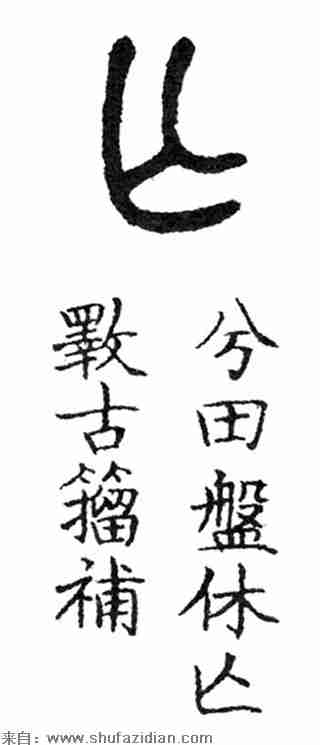 亾
兮田盤休亾
斁古籀補
来自：www.shufazidian.com